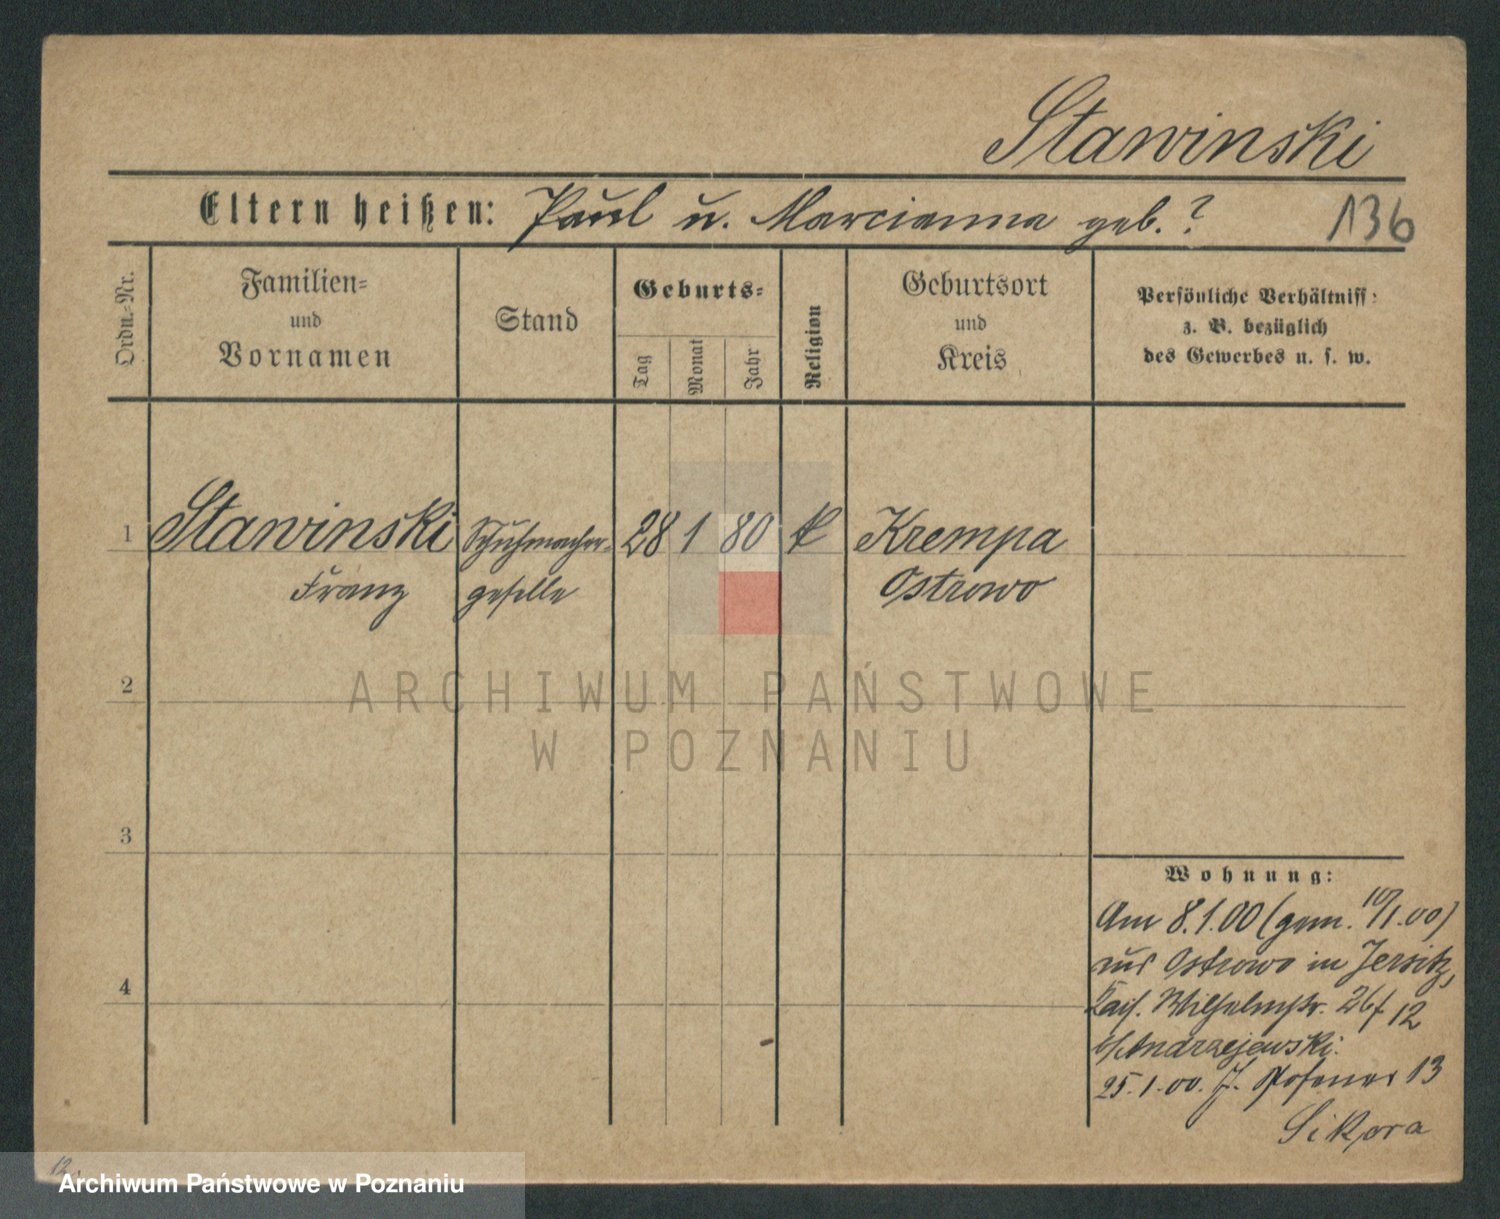 Stawinski
Eltern heißen: Paul u. Marcianna geb. ?
136
Ordn.-Nr.
Familien-
und
Vornamen
Stand
Geburts-
Tag
Monat
Jahr
Religion
Geburtsort
und
Kreis
Persönliche Verhältniss:
z. B. bezüglich
des Gewerbes u. s. w.
1 Stawinski Schuhmacher- 28 1 80 k Krempa
Franz geselle Ostrowo
2
3
4
Wohnung:
Am 8.1.00 (gem. 10/1.00)
aus Ostrowo in Jersitz,
Kais. Wilhelmstr. 26 12
b/Andrzejewski.
25.1.00. J. Posener 13
Sikora
ARCHIWUM PAŃSTWOWE
W POZNANIU
12.
Archiwum Państwowe w Poznaniu